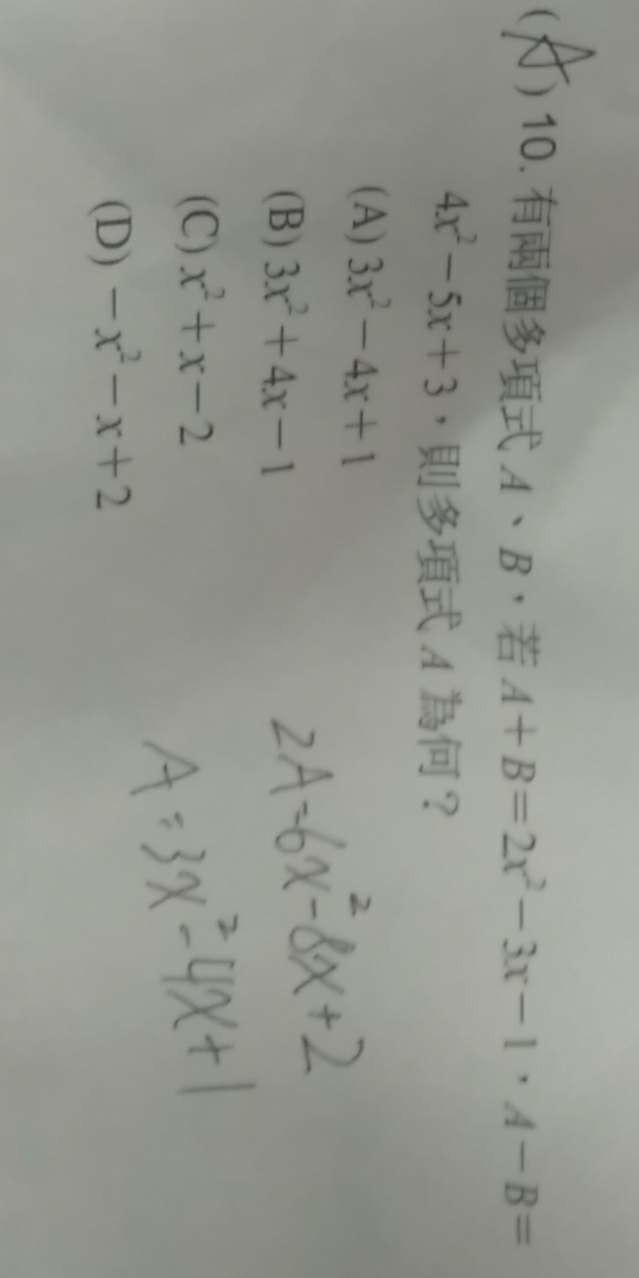 (A) 10. 有兩個多項式 A、B,若 A+B=2x²-3x-1,A-B=
4x²-5x+3,則多項式 A 為何?
(A) 3x²-4x+1
(B) 3x²+4x-1
(C) x²+x-2
(D) -x²-x+2
2A=6x²-8x+2
A=3x²-4x+1